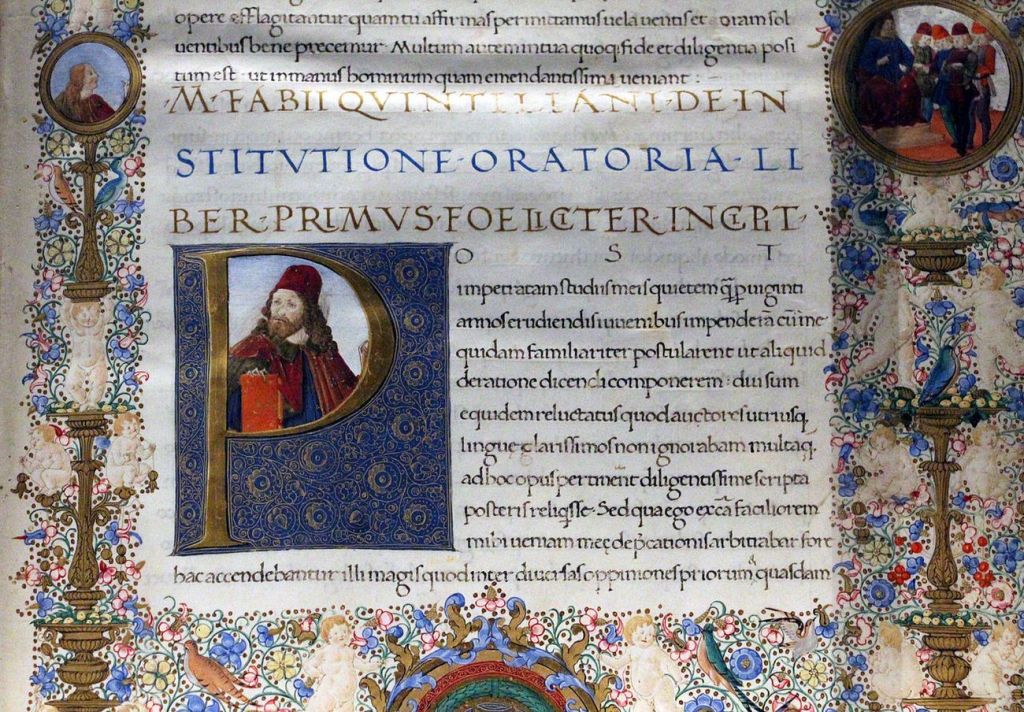 opere efflagitantur quam tu affirmas permittamus uela uentis et oram sol
uentibus bene precemur. Multum autem in tua quoq; fide et diligentia posi
tum est. ut in manus hominum quam emendatissimi ueniant :
M·FABII QVINTILIANI·DE·IN
STITVTIONE·ORATORIA·LI
BER·PRIMVS·FOELICITER·INCIPIT·
P O S T
impetratam studiis meis quietem q̃ p uiginti
annos erudiendis iuuenibus impenderã cũ me
quidam familiariter postularent ut aliquid
de ratione dicendi componerem: diu sum
equidem reluctatus quod auctores utriusq;
lingue clarissimos non ignorabam multaq;
ad hoc opus pertinent diligentissime scripta
posteris reliq̃sse. Sed qua ego ex cã faciliorem
mihi ueniam meę dep̃cationis arbitrabar fore
hac accendebantur illi magis quod inter diuersas oppiniones priorum quasdam